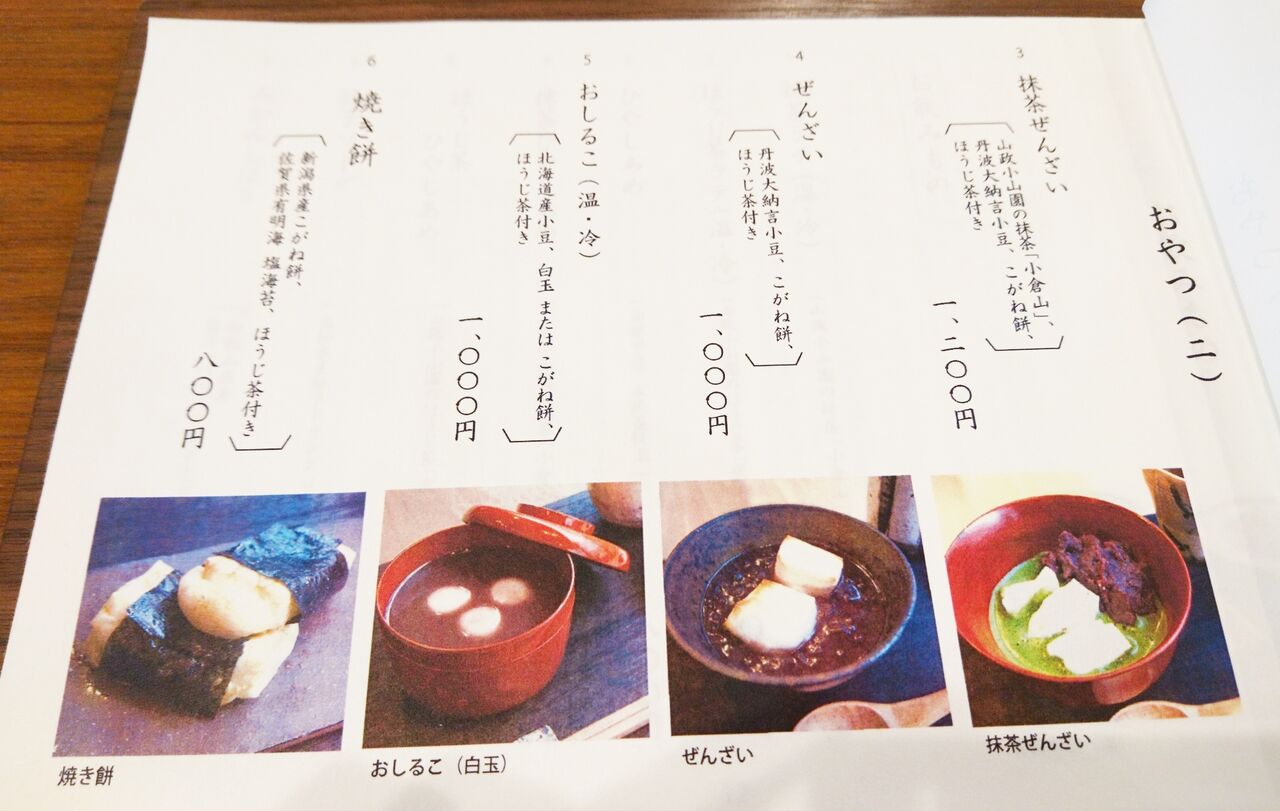 おやつ（二）
3
抹茶ぜんざい
山政小山園の抹茶「小倉山」、
丹波大納言小豆、こがね餅、
ほうじ茶付き
一、二〇〇円
4
ぜんざい
丹波大納言小豆、こがね餅、
ほうじ茶付き
一、〇〇〇円
5
おしるこ（温・冷）
北海道産小豆、白玉 または こがね餅、
ほうじ茶付き
一、〇〇〇円
6
焼き餅
新潟県産こがね餅、
佐賀県有明海 塩海苔、ほうじ茶付き
八〇〇円
焼き餅
おしるこ（白玉）
ぜんざい
抹茶ぜんざい